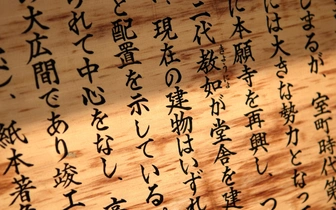 しまるが、室町時代
には大きな勢力となっ
に本願寺を再興し、つ
二代教如が堂舎を建
、現在の建物はいずれ
と配置を示している。
られて中心をなし、
大広間であり竣工
紙本著